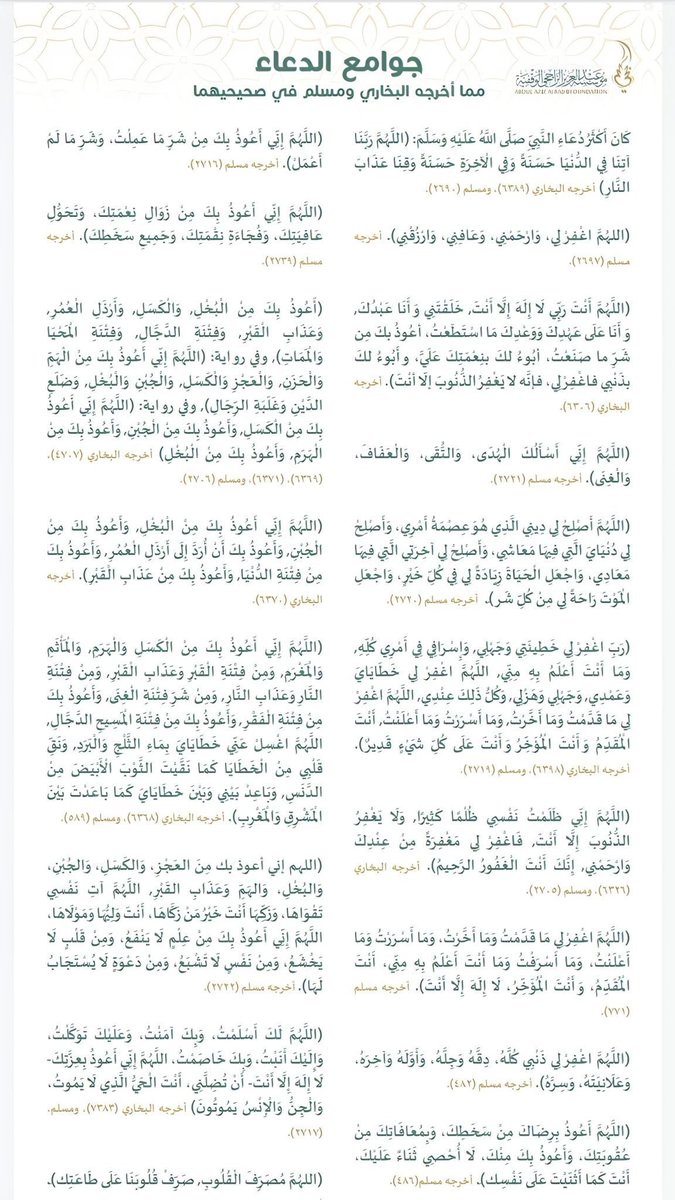 جوامع الدعاء
مما أخرجه البخاري ومسلم في صحيحيهما
مؤسسة عبدالعزيز الراجحي الوقفية
ABDUL AZIZ ALRAJHI FOUNDATION
كَانَ أَكْثَرُ دُعَاءِ النَّبِيِّ صَلَّى اللَّهُ عَلَيْهِ وَسَلَّمَ: (اللَّهُمَّ رَبَّنَا
آتِنَا فِي الدُّنْيَا حَسَنَةً وَفِي الْآخِرَةِ حَسَنَةً وَقِنَا عَذَابَ
النَّارِ) أخرجه البخاري (٦٣٨٩)، ومسلم (٢٦٩٠).
(اللهُمَّ اغْفِرْ لِي، وَارْحَمْنِي، وَعَافِنِي، وَارْزُقْنِي). أخرجه
مسلم (٢٦٩٧).
(اللَّهُمَّ أَنْتَ رَبِّي لَا إِلَهَ إِلَّا أَنْتَ, خَلَقْتَنِي وَأَنَا عَبْدُكَ,
وَأَنَا عَلَى عَهْدِكَ وَوَعْدِكَ مَا اسْتَطَعْتُ، أَعُوذُ بكَ مِن
شَرِّ ما صَنَعْتُ، أَبُوءُ لكَ بنِعْمَتِكَ عَلَيَّ، وأَبُوءُ لكَ
بذَنْبِي فاغْفِرْ لِي، فإنَّه لا يَغْفِرُ الذُّنُوبَ إلَّا أنْتَ). أخرجه
البخاري (٦٣٠٦).
(اللَّهُمَّ إِنِّي أَسْأَلُكَ الْهُدَى، وَالتُّقَى، وَالْعَفَافَ،
وَالْغِنَى). أخرجه مسلم (٢٧٢١).
(اللَّهُمَّ أَصْلِحْ لِي دِينِي الَّذِي هُوَ عِصْمَةُ أَمْرِي، وَأَصْلِحْ
لِي دُنْيَايَ الَّتِي فِيهَا مَعَاشِي، وَأَصْلِحْ لِي آخِرَتِي الَّتِي فِيهَا
مَعَادِي، وَاجْعَلِ الْحَيَاةَ زِيَادَةً لِي فِي كُلِّ خَيْرٍ، وَاجْعَلِ
الْمَوْتَ رَاحَةً لِي مِنْ كُلِّ شَر). أخرجه مسلم (٢٧٢٠).
(رَبِّ اغْفِرْ لِي خَطِيئَتِي وَجَهْلِي, وَإِسْرَافِي فِي أَمْرِي كُلِّهِ,
وَمَا أَنْتَ أَعْلَمُ بِهِ مِنِّي, اللَّهُمَّ اغْفِرْ لِي خَطَايَايَ
وَعَمْدِي, وَجَهْلِي وَهَزْلِي, وَكُلُّ ذَلِكَ عِنْدِي, اللَّهُمَّ اغْفِرْ
لِي مَا قَدَّمْتُ وَمَا أَخَّرْتُ, وَمَا أَسْرَرْتُ وَمَا أَعْلَنْتُ, أَنْتَ
الْمُقَدِّمُ وَأَنْتَ الْمُؤَخِّرُ وَأَنْتَ عَلَى كُلِّ شَيْءٍ قَدِيرٌ).
أخرجه البخاري (٦٣٩٨)، ومسلم (٢٧١٩).
(اللَّهُمَّ إِنِّي ظَلَمْتُ نَفْسِي ظُلْمًا كَثِيرًا, وَلَا يَغْفِرُ
الذُّنُوبَ إِلَّا أَنْتَ, فَاغْفِرْ لِي مَغْفِرَةً مِنْ عِنْدِكَ
وَارْحَمْنِي, إِنَّكَ أَنْتَ الْغَفُورُ الرَّحِيمُ). أخرجه البخاري
(٦٣٢٦)، ومسلم (٢٧٠٥).
(اللَّهُمَّ اغْفِرْ لِي مَا قَدَّمْتُ وَمَا أَخَّرْتُ، وَمَا أَسْرَرْتُ وَمَا
أَعْلَنْتُ، وَمَا أَسْرَفْتُ وَمَا أَنْتَ أَعْلَمُ بِهِ مِنِّي، أَنْتَ
الْمُقَدِّمُ، وَأَنْتَ الْمُؤَخِّرُ، لَا إِلَهَ إِلَّا أَنْتَ). أخرجه مسلم
(٧٧١).
(اللَّهُمَّ اغْفِرْ لِي ذَنْبِي كُلَّهُ، دِقَّهُ وَجِلَّهُ، وَأَوَّلَهُ وَآخِرَهُ،
وَعَلَانِيَتَهُ، وَسِرَّهُ). أخرجه مسلم (٤٨٢).
(اللَّهُمَّ أَعُوذُ بِرِضَاكَ مِنْ سَخَطِكَ، وَبِمُعَافَاتِكَ مِنْ
عُقُوبَتِكَ، وَأَعُوذُ بِكَ مِنْكَ، لَا أُحْصِي ثَنَاءً عَلَيْكَ،
أَنْتَ كَمَا أَثْنَيْتَ عَلَى نَفْسِكَ). أخرجه مسلم (٤٨٦).
(اللَّهُمَّ إِنِّي أَعُوذُ بِكَ مِنْ شَرِّ مَا عَمِلْتُ، وَشَرِّ مَا لَمْ
أَعْمَلْ). أخرجه مسلم (٢٧١٦).
(اللَّهُمَّ إِنِّي أَعُوذُ بِكَ مِنْ زَوَالِ نِعْمَتِكَ، وَتَحَوُّلِ
عَافِيَتِكَ، وَفُجَاءَةِ نِقْمَتِكَ، وَجَمِيعِ سَخَطِكَ). أخرجه
مسلم (٢٧٣٩).
(أَعُوذُ بِكَ مِنْ الْبُخْلِ، وَالْكَسَلِ، وَأَرْذَلِ الْعُمُرِ,
وَعَذَابِ الْقَبْرِ, وَفِتْنَةِ الدَّجَّالِ, وَفِتْنَةِ الْمَحْيَا
وَالْمَمَاتِ), وفي رواية: (اللَّهُمَّ إِنِّي أَعُوذُ بِكَ مِنْ الْهَمِّ
وَالْحَزَنِ, وَالْعَجْزِ وَالْكَسَلِ, وَالْجُبْنِ وَالْبُخْلِ, وَضَلَعِ
الدَّيْنِ وَغَلَبَةِ الرِّجَالِ), وفي رواية: (اللَّهُمَّ إِنِّي أَعُوذُ
بِكَ مِنْ الْكَسَلِ, وَأَعُوذُ بِكَ مِنْ الْجُبْنِ, وَأَعُوذُ بِكَ مِنْ
الْهَرَمِ, وَأَعُوذُ بِكَ مِنْ الْبُخْلِ) أخرجه البخاري (٤٧٠٧)،
(٦٣٦٩)، (٦٣٧١)، ومسلم (٢٧٠٦).
(اللَّهُمَّ إِنِّي أَعُوذُ بِكَ مِنْ الْبُخْلِ, وَأَعُوذُ بِكَ مِنْ
الْجُبْنِ, وَأَعُوذُ بِكَ أَنْ أُرَدَّ إِلَى أَرْذَلِ الْعُمُرِ, وَأَعُوذُ بِكَ
مِنْ فِتْنَةِ الدُّنْيَا, وَأَعُوذُ بِكَ مِنْ عَذَابِ الْقَبْرِ). أخرجه
البخاري (٦٣٧٠).
(اللَّهُمَّ إِنِّي أَعُوذُ بِكَ مِنْ الْكَسَلِ وَالْهَرَمِ, وَالْمَأْثَمِ
وَالْمَغْرَمِ, وَمِنْ فِتْنَةِ الْقَبْرِ وَعَذَابِ الْقَبْرِ, وَمِنْ فِتْنَةِ
النَّارِ وَعَذَابِ النَّارِ, وَمِنْ شَرِّ فِتْنَةِ الْغِنَى, وَأَعُوذُ بِكَ
مِنْ فِتْنَةِ الْفَقْرِ, وَأَعُوذُ بِكَ مِنْ فِتْنَةِ الْمَسِيحِ الدَّجَّالِ,
اللَّهُمَّ اغْسِلْ عَنِّي خَطَايَايَ بِمَاءِ الثَّلْجِ وَالْبَرَدِ, وَنَقِّ
قَلْبِي مِنْ الْخَطَايَا كَمَا نَقَّيْتَ الثَّوْبَ الْأَبْيَضَ مِنْ
الدَّنَسِ, وَبَاعِدْ بَيْنِي وَبَيْنَ خَطَايَايَ كَمَا بَاعَدْتَ بَيْنَ
الْمَشْرِقِ وَالْمَغْرِبِ). أخرجه البخاري (٦٣٦٨)، ومسلم (٥٨٩).
(اللهم إني أعوذ بك مِنَ العَجْزِ، وَالكَسَلِ، وَالْجُبْنِ،
وَالبُخْلِ، وَالهَمِّ وَعَذَابِ القَبْرِ, اللَّهُمَّ آتِ نَفْسِي
تَقْوَاهَا، وَزَكِّهَا أَنْتَ خَيْرُ مَنْ زَكَّاهَا، أَنْتَ وَلِيُّهَا وَمَوْلَاهَا،
اللَّهُمَّ إِنِّي أَعُوذُ بِكَ مِنْ عِلْمٍ لَا يَنْفَعُ، وَمِنْ قَلْبٍ لَا
يَخْشَعُ، وَمِنْ نَفْسٍ لَا تَشْبَعُ، وَمِنْ دَعْوَةٍ لَا يُسْتَجَابُ
لَهَا). أخرجه مسلم (٢٧٢٢).
(اللَّهُمَّ لَكَ أَسْلَمْتُ، وَبِكَ آمَنْتُ، وَعَلَيْكَ تَوَكَّلْتُ،
وَإِلَيْكَ أَنَبْتُ، وَبِكَ خَاصَمْتُ، اللَّهُمَّ إِنِّي أَعُوذُ بِعِزَّتِكَ-
لَا إِلَهَ إِلَّا أَنْتَ- أَنْ تُضِلَّنِي، أَنْتَ الْحَيُّ الَّذِي لَا يَمُوتُ،
وَالْجِنُّ وَالْإِنْسُ يَمُوتُونَ) أخرجه البخاري (٧٣٨٣)، ومسلم.
(٢٧١٧).
(اللهُمَّ مُصَرِّفَ الْقُلُوبِ, صَرِّفْ قُلُوبَنَا عَلَى طَاعَتِكَ).